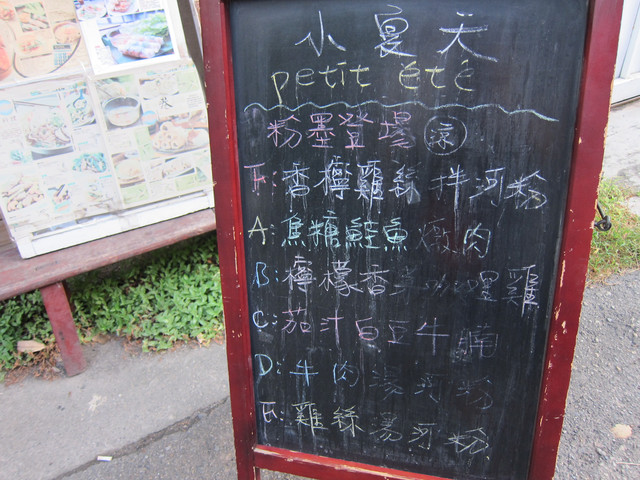 小夏天
petit été
粉墨登場 涼
F: 香檸雞絲拌河粉
A: 焦糖鮭魚燉肉
B: 檸檬香茅咖哩雞
C: 茄汁白豆牛腩
D: 牛肉湯河粉
E: 雞絲湯河粉